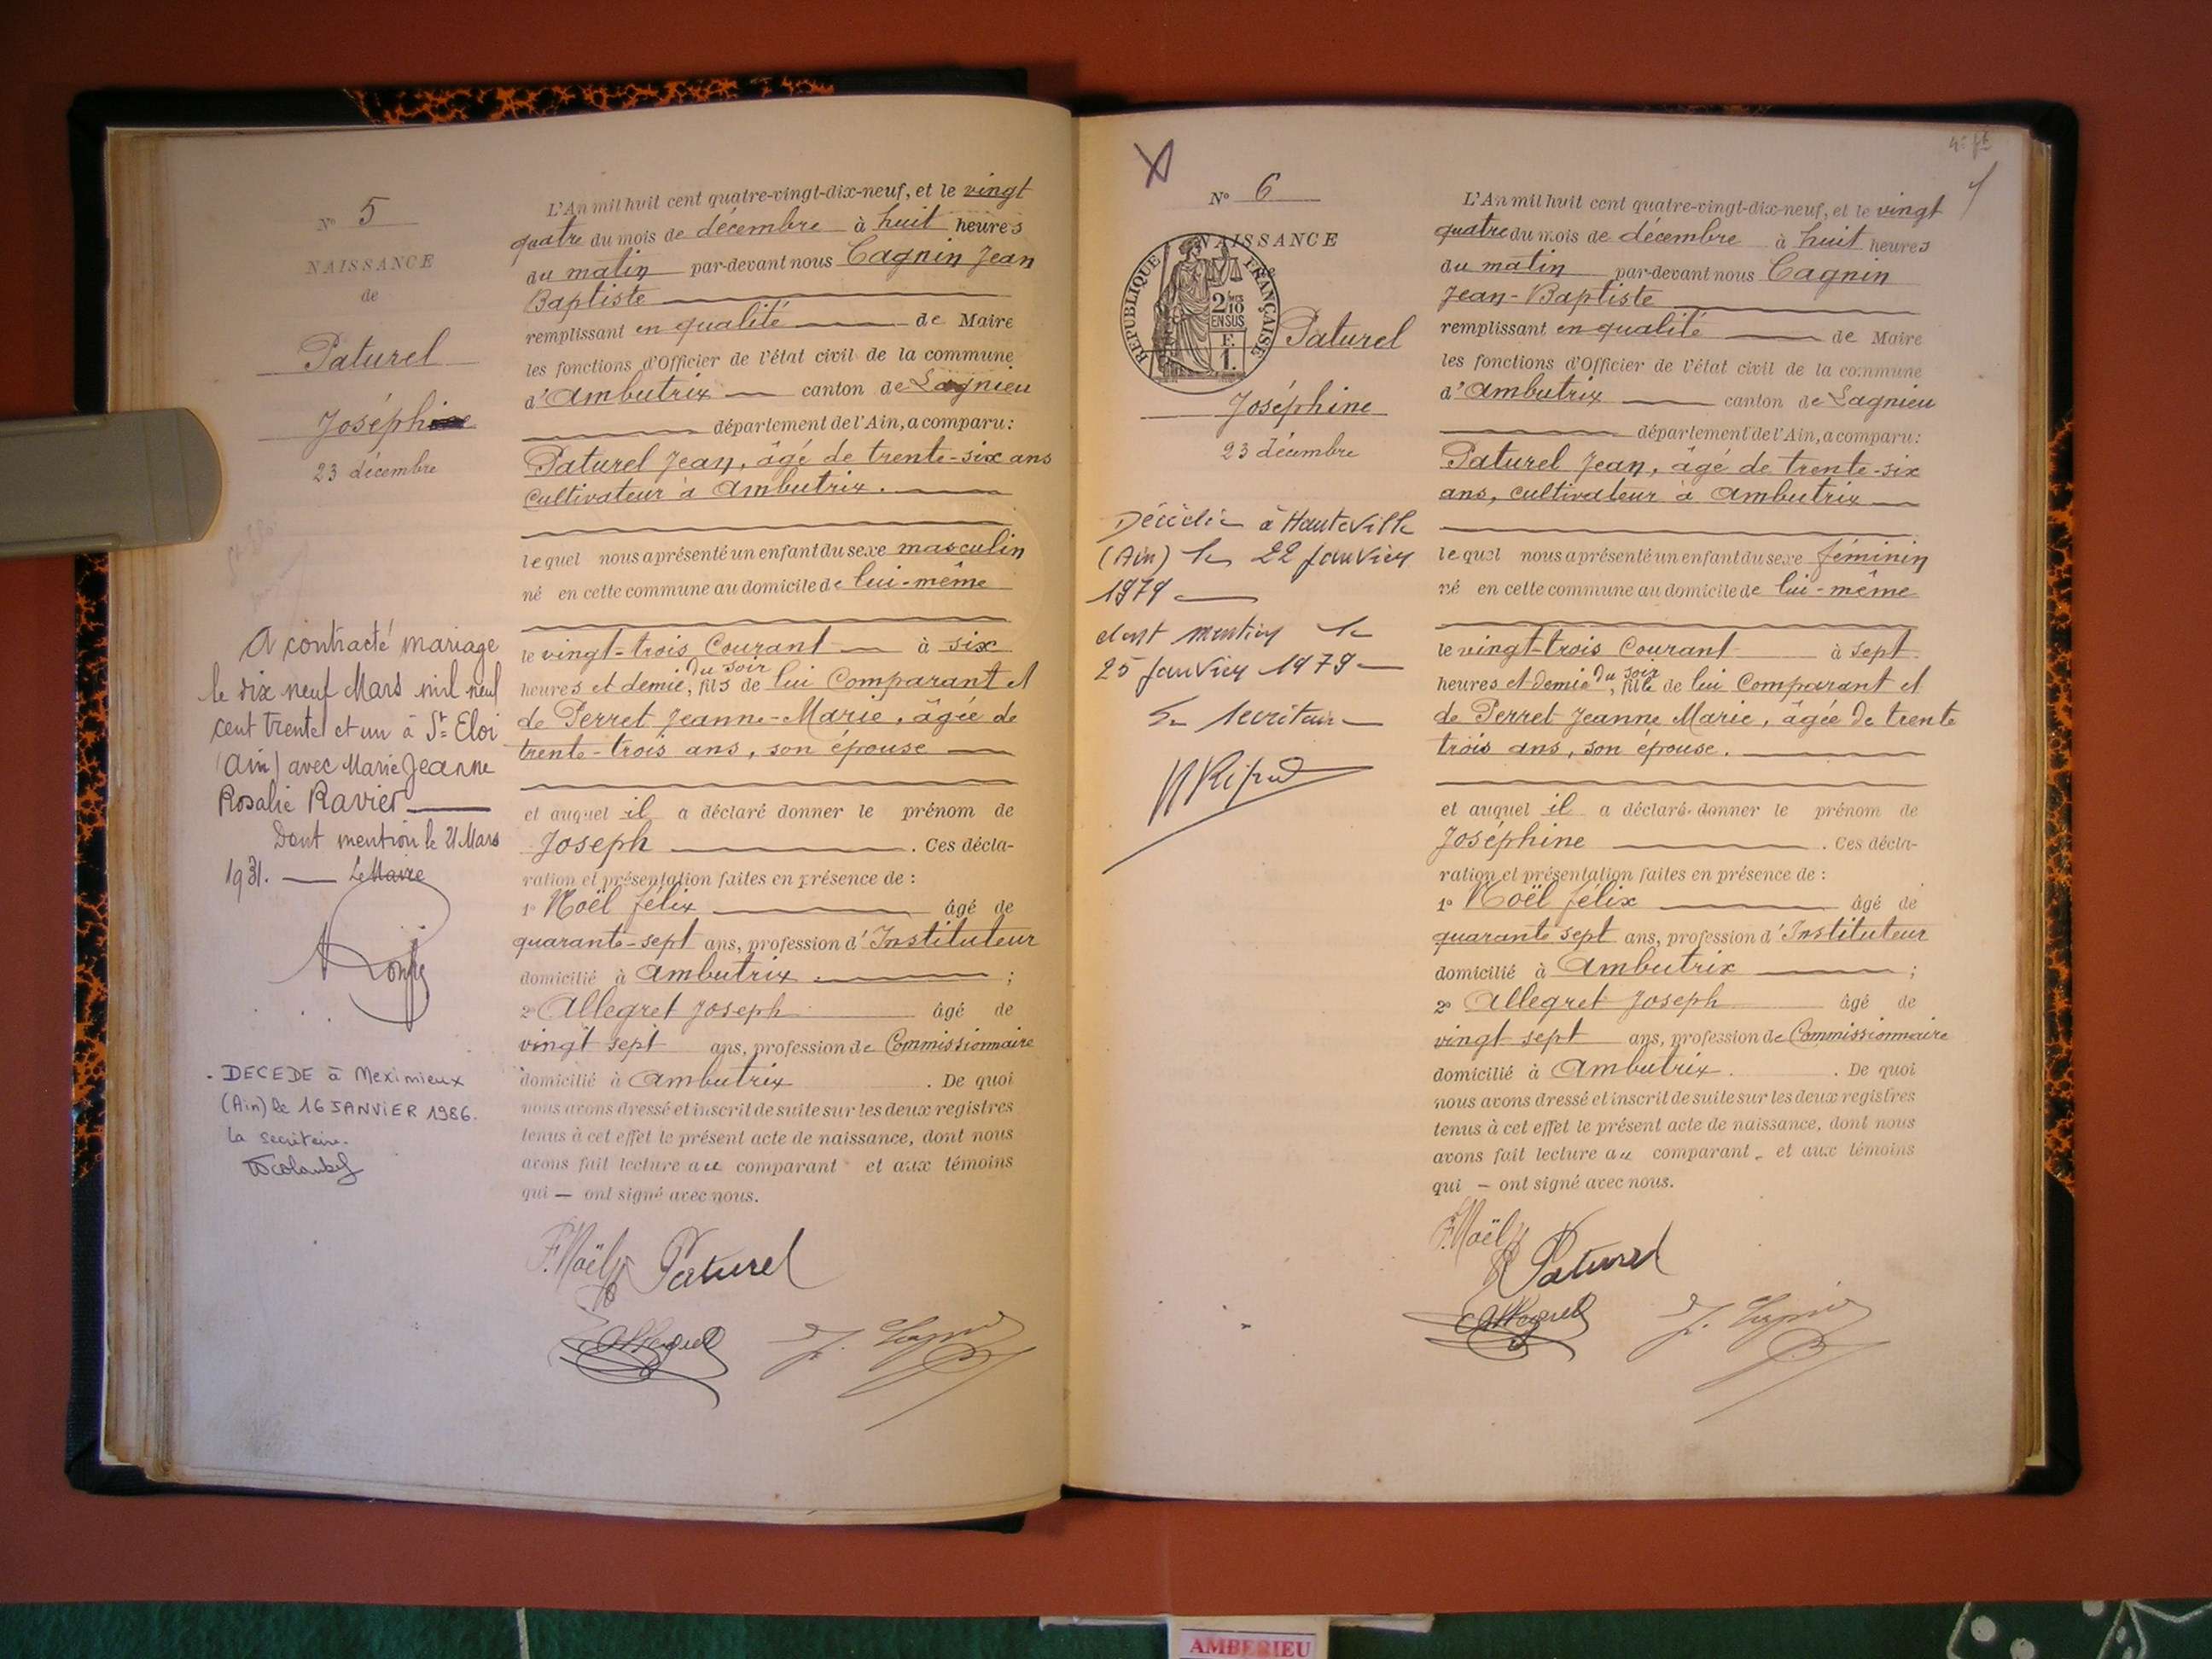 N° 5
NAISSANCE
de
Paturel
Joseph
23 décembre
A contracté mariage
le dix neuf Mars mil neuf
cent trente et un à St Eloi
(Ain) avec Marie Jeanne
Rosalie Ravier
Dont mention le 21 Mars
1931. Le Maire
- DECEDE à Meximieux
(Ain) le 16 JANVIER 1986.
La secrétaire.
L'An mil huit cent quatre-vingt-dix-neuf, et le vingt
quatre du mois de décembre à huit heures
du matin par-devant nous Cagnin Jean
Baptiste
remplissant en qualité de Maire
les fonctions d'Officier de l'état civil de la commune
d'Ambutrix canton de Lagnieu
département de l'Ain, a comparu :
Paturel Jean, âgé de trente-six ans
cultivateur à Ambutrix.
lequel nous a présenté un enfant du sexe masculin
né en cette commune au domicile de lui-même
le vingt-trois Courant à six
heures et demie, du soir, fils de lui Comparant et
de Perret Jeanne-Marie, âgée de
trente-trois ans, son épouse
et auquel il a déclaré donner le prénom de
Joseph . Ces décla-
ration et présentation faites en présence de :
1° Noël félix âgé de
quarante-sept ans, profession d'Instituteur
domicilié à Ambutrix ;
2° Allegret Joseph âgé de
vingt sept ans, profession de Commissionnaire
domicilié à Ambutrix . De quoi
nous avons dressé et inscrit de suite sur les deux registres
tenus à cet effet le présent acte de naissance, dont nous
avons fait lecture au comparant et aux témoins
qui — ont signé avec nous.
F. Noël Paturel
Allegret
N° 6
NAISSANCE
RÉPUBLIQUE FRANÇAISE
2/10
EN SUS
F.
1.
Paturel
Joséphine
23 décembre
Décédée à Hauteville
(Ain) le 22 Janvier
1979
dont mention le
25 Janvier 1979
L'An mil huit cent quatre-vingt-dix-neuf, et le vingt
quatre du mois de décembre à huit heures
du matin par-devant nous Cagnin
Jean-Baptiste
remplissant en qualité de Maire
les fonctions d'Officier de l'état civil de la commune
d'Ambutrix canton de Lagnieu
département de l'Ain, a comparu :
Paturel Jean, âgé de trente-six
ans, cultivateur à Ambutrix
lequel nous a présenté un enfant du sexe féminin
né en cette commune au domicile de lui-même
le vingt-trois Courant à sept
heures et demie du soir, fille de lui Comparant et
de Perret Jeanne Marie, âgée de trente
trois ans, son épouse.
et auquel il a déclaré donner le prénom de
Joséphine . Ces décla-
ration et présentation faites en présence de :
1° Noël félix âgé de
quarante sept ans, profession d'Instituteur
domicilié à Ambutrix ;
2° Allegret Joseph âgé de
vingt sept ans, profession de Commissionnaire
domicilié à Ambutrix . De quoi
nous avons dressé et inscrit de suite sur les deux registres
tenus à cet effet le présent acte de naissance, dont nous
avons fait lecture au comparant et aux témoins
qui — ont signé avec nous.
F. Noël
Paturel
Allegret
AMBERIEU